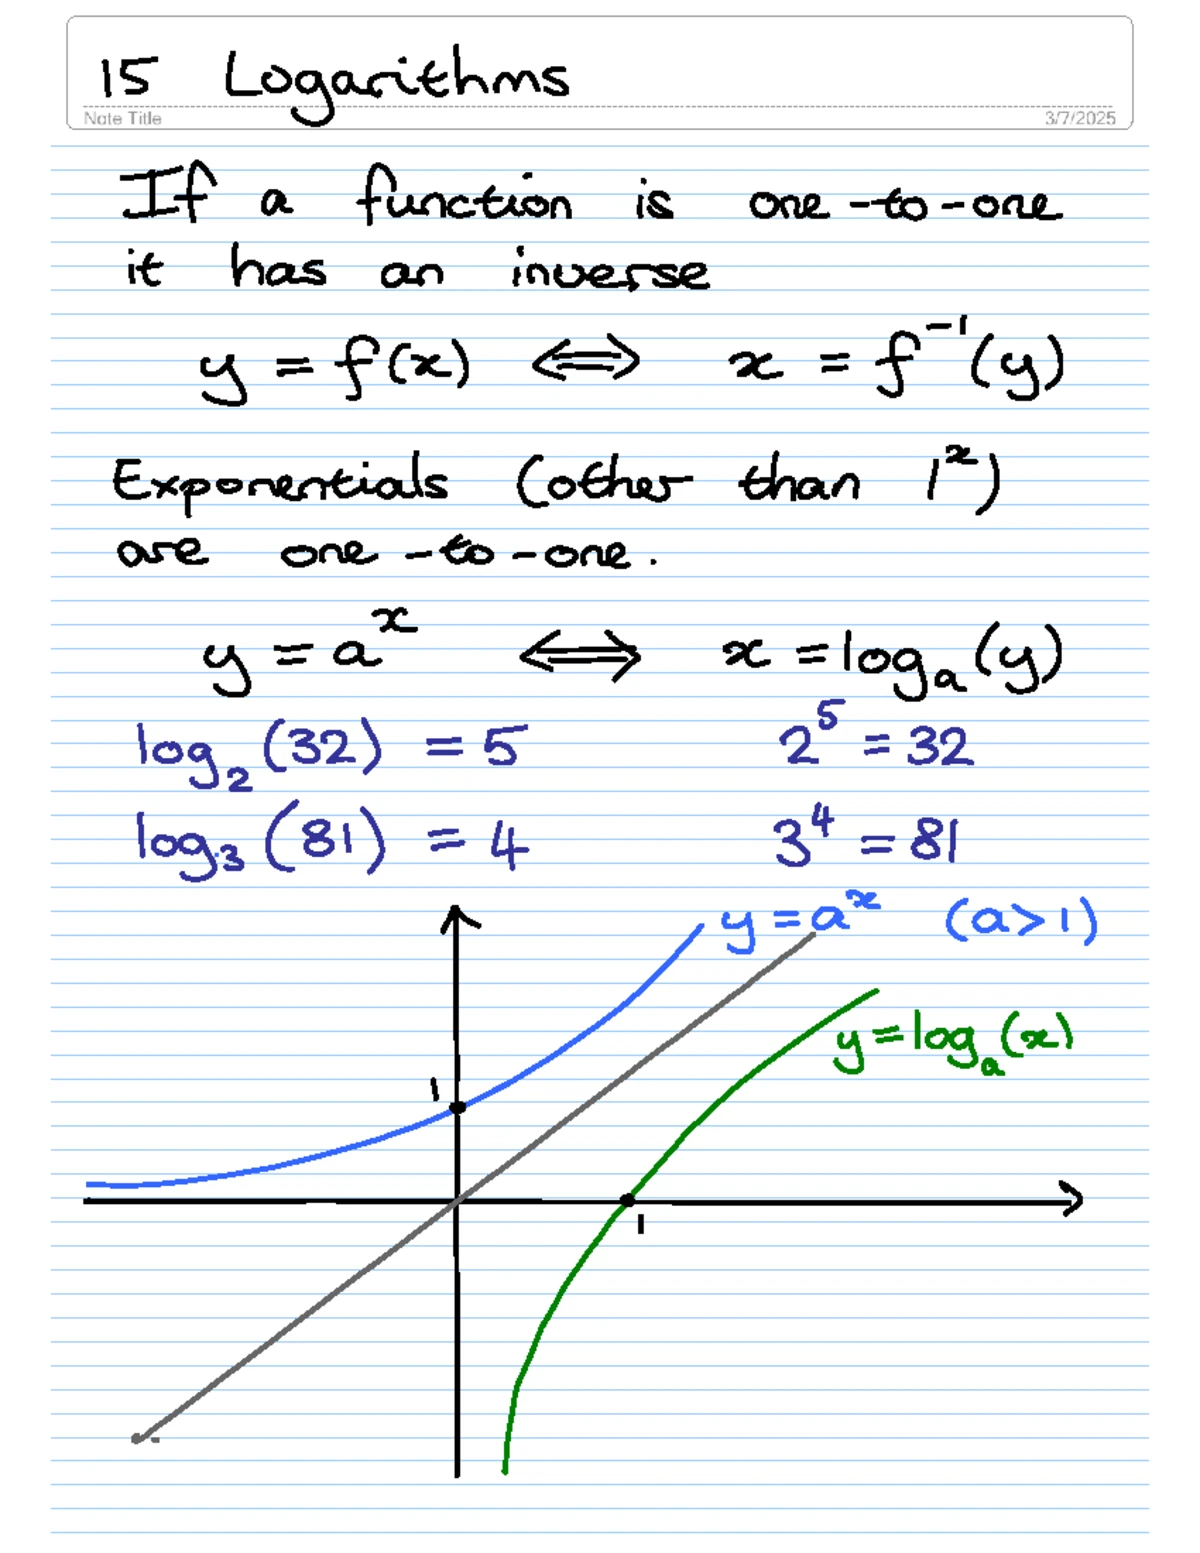 15 Logarithms
Note Title 3/7/2025
If a function is one-to-one
it has an inverse
y = f(x) ⟺ x = f⁻¹(y)
Exponentials (other than 1ˣ)
are one-to-one.
y = aˣ ⟺ x = logₐ(y)
log₂(32) = 5 2⁵ = 32
log₃(81) = 4 3⁴ = 81
y = aˣ (a>1)
y = logₐ(x)
1
1